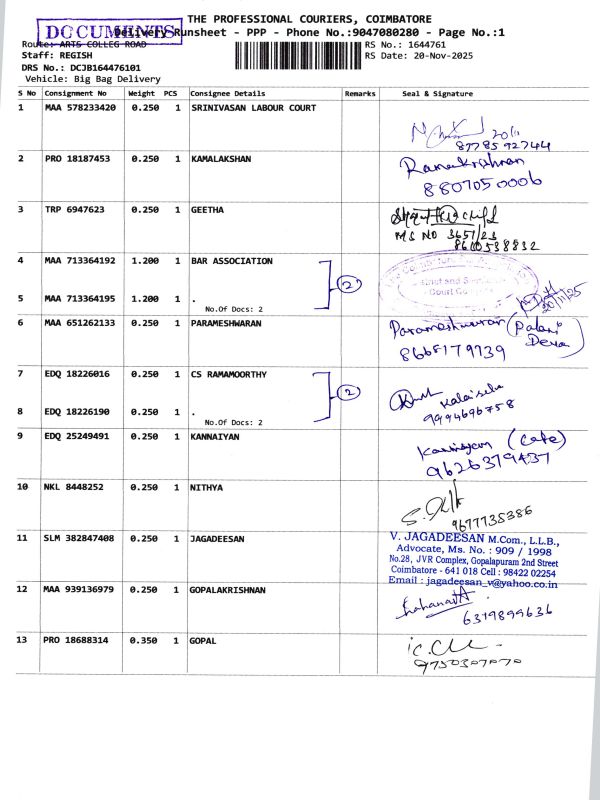 THE PROFESSIONAL COURIERS, COIMBATORE
DOCUMENTS
Delivery Runsheet - PPP - Phone No.:9047080280 - Page No.:1
Route: ARTS COLLEG ROAD
RS No.: 1644761
Staff: REGISH
RS Date: 20-Nov-2025
DRS No.: DCJB164476101
Vehicle: Big Bag Delivery
S No Consignment No Weight PCS Consignee Details Remarks Seal & Signature
1 MAA 578233420 0.250 1 SRINIVASAN LABOUR COURT
20/11
8778592744
2 PRO 18187453 0.250 1 KAMALAKSHAN
Ramakrishnan
8807050006
3 TRP 6947623 0.250 1 GEETHA
MS NO 3651/23
8610538832
4 MAA 713364192 1.200 1 BAR ASSOCIATION
2
5 MAA 713364195 1.200 1 .
No.Of Docs: 2
20/11/25
6 MAA 651262133 0.250 1 PARAMESHWARAN
Parameshwaran (Palani
Deva)
8668179939
7 EDQ 18226016 0.250 1 CS RAMAMOORTHY
2
Kalaiselvi
9994696758
8 EDQ 18226190 0.250 1 .
No.Of Docs: 2
9 EDQ 25249491 0.250 1 KANNAIYAN
Kannaiyan (cafe)
9626379437
10 NKL 8448252 0.250 1 NITHYA
9677735386
11 SLM 382847408 0.250 1 JAGADEESAN
V. JAGADEESAN M.Com., L.L.B.,
Advocate, Ms. No. : 909 / 1998
No.28, JVR Complex, Gopalapuram 2nd Street
Coimbatore - 641 018 Cell : 98422 02254
Email : jagadeesan_v@yahoo.co.in
12 MAA 939136979 0.250 1 GOPALAKRISHNAN
6379899636
13 PRO 18688314 0.350 1 GOPAL
9750307070